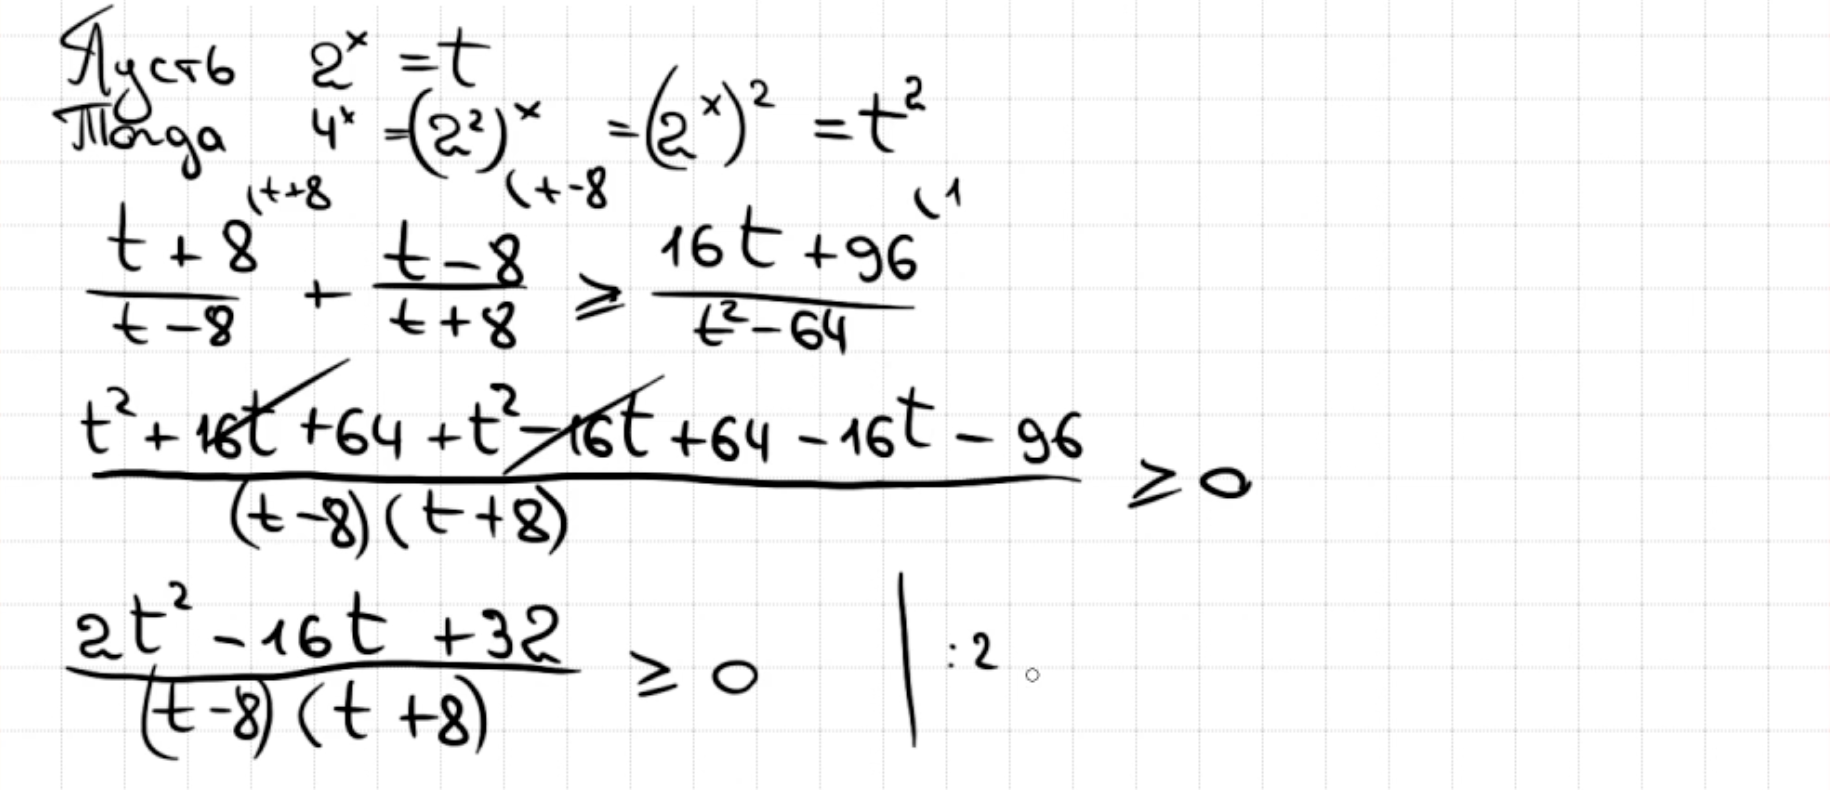 Пусть 2^x = t
Тогда 4^x = (2^2)^x = (2^x)^2 = t^2
(t+8 (t-8 (1
(t + 8)/(t - 8) + (t - 8)/(t + 8) ≥ (16t + 96)/(t^2 - 64)
(t^2 + 16t + 64 + t^2 - 16t + 64 - 16t - 96)/((t - 8)(t + 8)) ≥ 0
(2t^2 - 16t + 32)/((t - 8)(t + 8)) ≥ 0 | :2